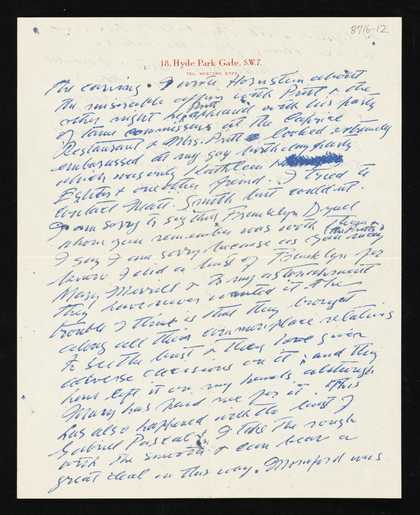 8716-12
18, Hyde Park Gate, S.W.7.
TEL. WESTERN
the evening. I wrote Hornstein about
the miserable affair with Pratt & the
other night Pratt happened with his party
at the Caprice
Restaurant & Mrs. Pratt looked extremely
embarrassed at my gay birthday party
which was only Kathleen
Epstein & one other friend. I tried to
contact Matt. Smith but couldn't.
I am sorry to say that Franklyn Dyall
whom you remember was with them
I say I am sorry because as you
know I did a bust of Franklyn for
Mary Merrall & to my astonishment
they have never wanted it. The
trouble I think is that they brought
along all their commonplace relatives
to see the bust & they have given
adverse decisions on it; and they
have left it on my hands, although
Mary has paid me for it. This
has also happened with the bust of
Gabriel Pascal. I take the rough
with the smooth & can bear a
great deal in this way. was